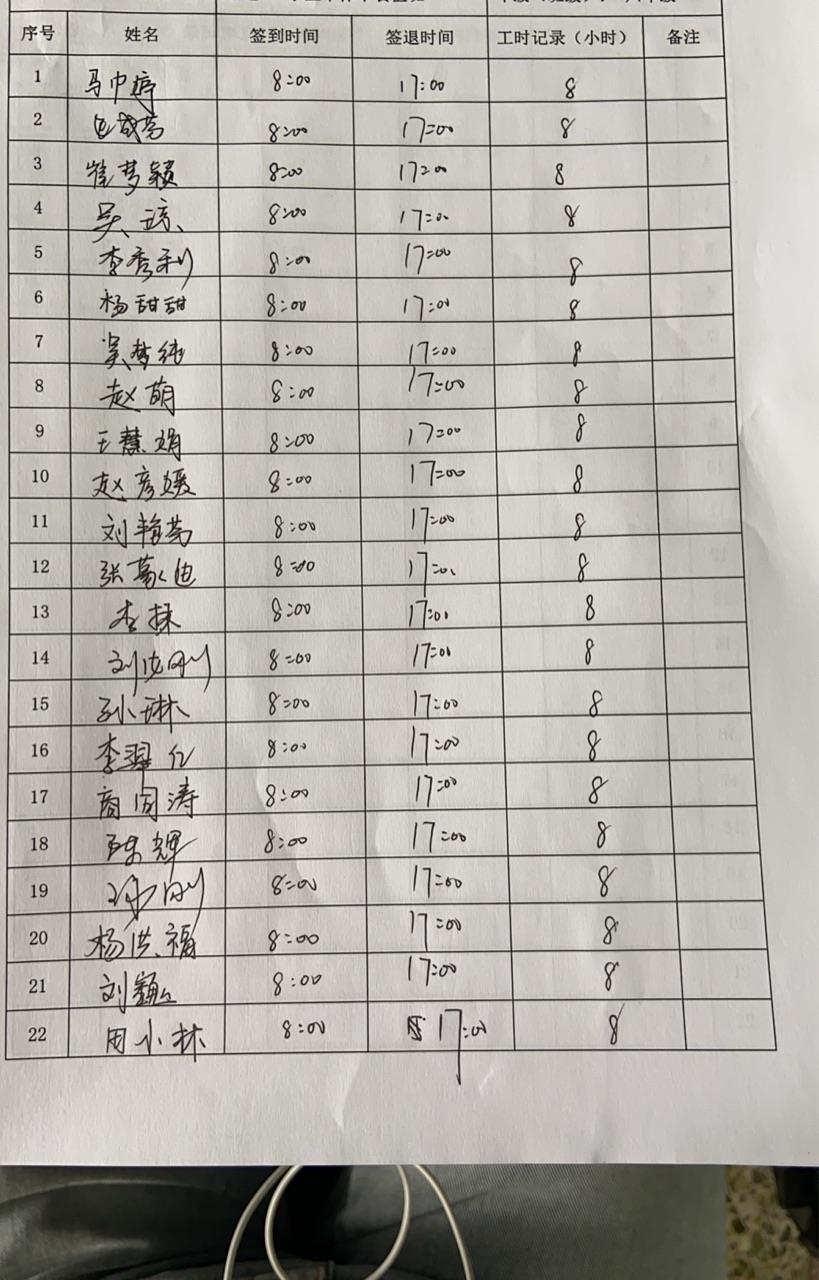 序号 姓名 签到时间 签退时间 工时记录（小时） 备注
1 马巾婷 8:00 17:00 8
2 8:00 17:00 8
3 崔梦颖 8:00 17:00 8
4 吴琼 8:00 17:00 8
5 李秀利 8:00 17:00 8
6 杨甜甜 8:00 17:00 8
7 吴梦纯 8:00 17:00 8
8 赵萌 8:00 17:00 8
9 王慧娟 8:00 17:00 8
10 赵彦媛 8:00 17:00 8
11 刘艳芳 8:00 17:00 8
12 张 迪 8:00 17:00 8
13 李 8:00 17:00 8
14 刘 刚 8:00 17:00 8
15 孙琳 8:00 17:00 8
16 李翠红 8:00 17:00 8
17 商同涛 8:00 17:00 8
18 陈辉 8:00 17:00 8
19 8:00 17:00 8
20 杨洪福 8:00 17:00 8
21 刘 8:00 17:00 8
22 周小林 8:00 17:00 8